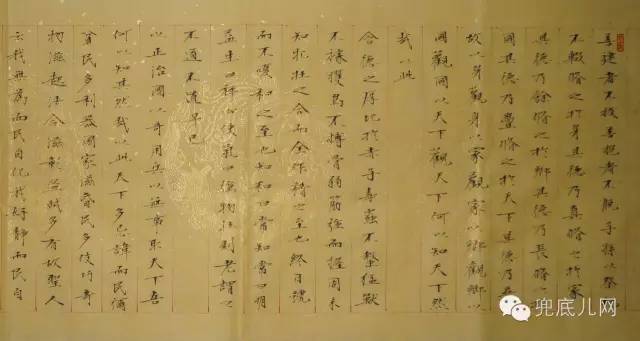 善建者不拔善抱者不脫子孫以祭祀
不輟脩之於身其德乃真脩之於家
其德乃餘脩之於鄉其德乃長脩之於
國其德乃豐脩之於天下其德乃普
故以身觀身以家觀家以鄉觀鄉以
國觀國以天下觀天下何以知天下然
哉以此
含德之厚比於赤子毒蟲不螫猛獸
不據攫鳥不搏骨弱筋強而握固未
知牝牡之合而全作精之至也終日號
而不嗄和之至也知和曰常知常曰明
益生曰祥心使氣曰強物壯則老謂之
不道不道早已
以正治國以奇用兵以無事取天下吾
何以知其然哉以此天下多忌諱而民彌
貧民多利器國家滋昏民多技巧奇
物滋起法令滋彰盜賊多有故聖人
云我無為而民自化我好靜而民自
兜底儿网